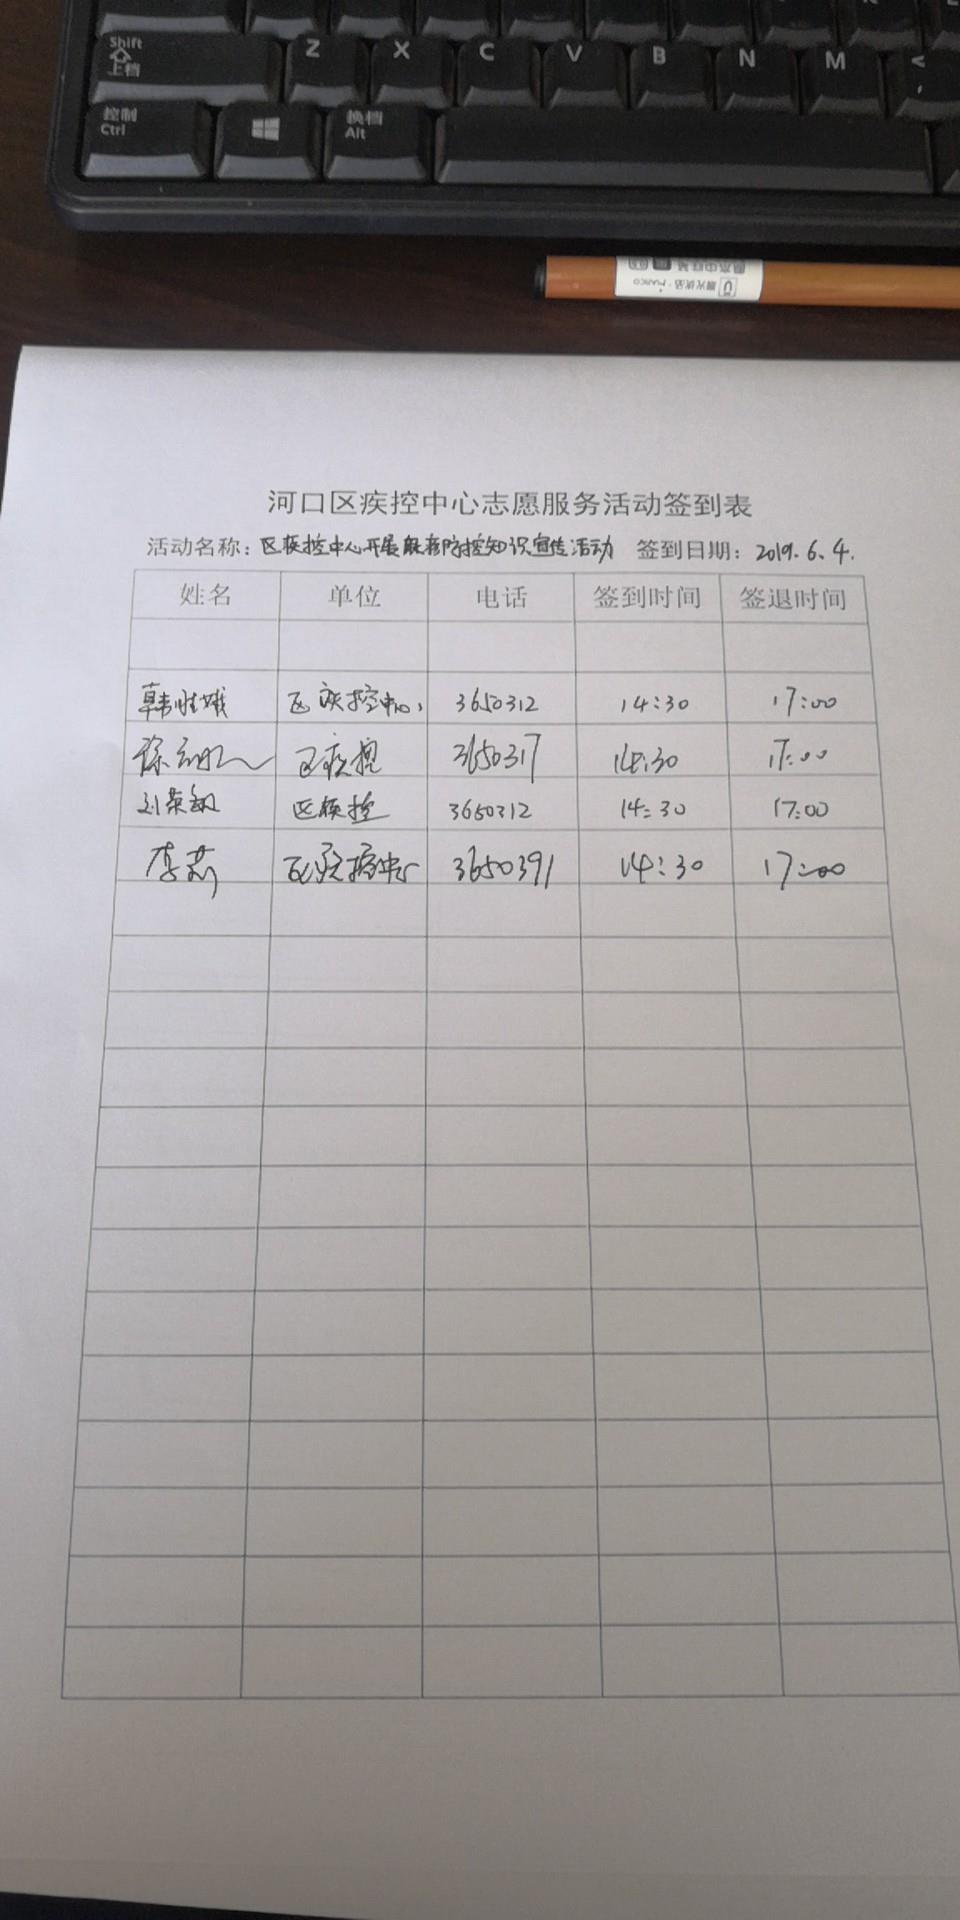 Shift
上档
Z X C V B N M <
控制
Ctrl
换档
Alt
晨光优品 · MARCO
河口区疾控中心志愿服务活动签到表
活动名称：区疾控中心开展 防控知识宣传活动 签到日期：2019.6.4.
姓名 单位 电话 签到时间 签退时间
韩 娥 区疾控中心 3650312 14:30 17:00
徐 区疾控 3650317 14:30 17:00
刘 区疾控 3650312 14:30 17:00
李莉 区疾控中心 3650391 14:30 17:00